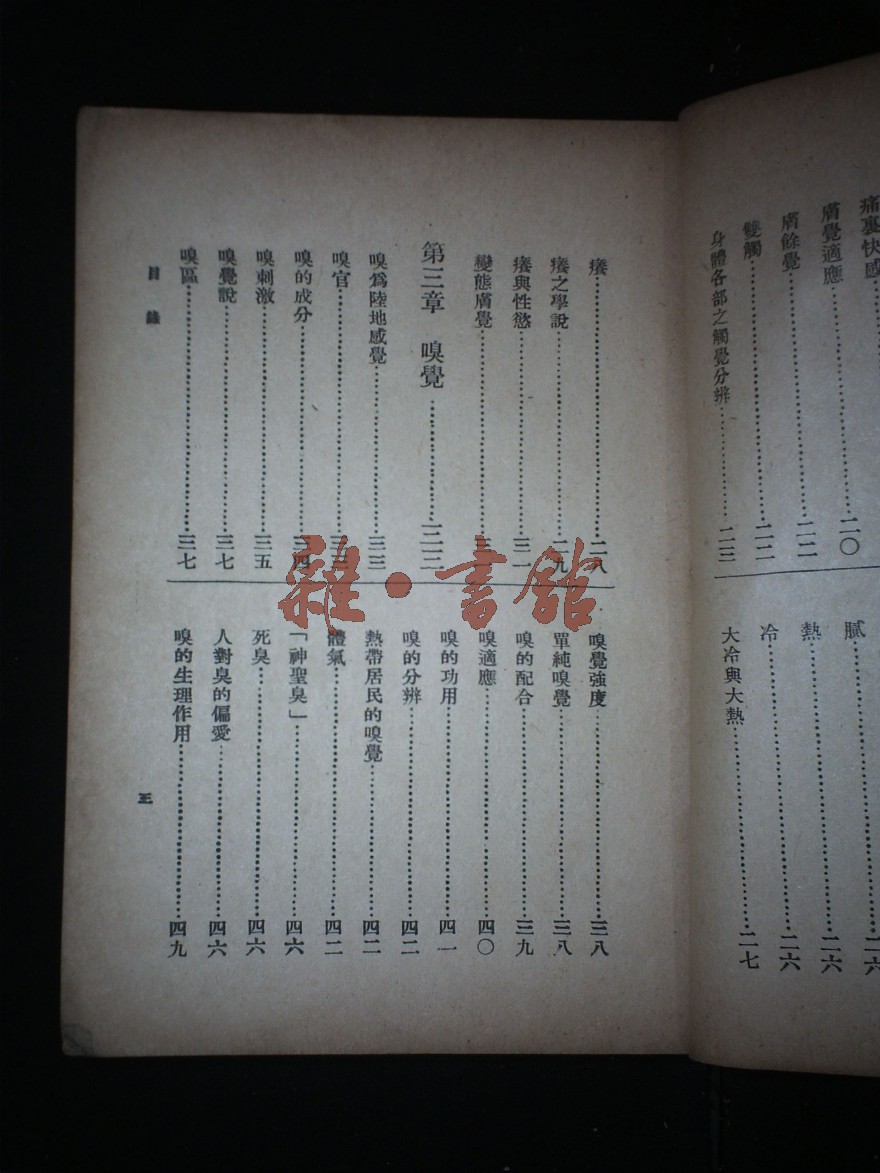 痛裏快感
膚覺適應……二〇
膚餘覺……二二
雙觸……二二
身體各部之觸覺分辨……二三
膩……二六
熱……二六
冷……二六
大冷與大熱……二七
癢……二八
癢之學說……二九
癢與性慾……三一
變態膚覺……
第三章 嗅覺……三三
嗅爲陸地感覺……三三
嗅官……三三
嗅的成分……三四
嗅刺激……三五
嗅覺說……三七
嗅區……三七
嗅覺強度……三八
單純嗅覺……三八
嗅的配合……三九
嗅適應……四〇
嗅的功用……四一
嗅的分辨……四二
熱帶居民的嗅覺……四二
體氣……四二
「神聖臭」……四六
死臭……四六
人對臭的偏愛……四六
嗅的生理作用……四九
目錄
三
雜·書館